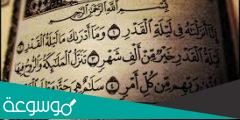 بِسْمِ اللَّهِ الرَّحْمَٰنِ الرَّحِيمِ
إِنَّا أَنزَلْنَاهُ فِي لَيْلَةِ الْقَدْرِ ١ وَمَا أَدْرَاكَ مَا لَيْلَةُ الْقَدْرِ ٢
لَيْلَةُ الْقَدْرِ خَيْرٌ مِّنْ أَلْفِ شَهْرٍ ٣ تَنَزَّلُ الْمَلَائِكَةُ وَالرُّوحُ فِيهَا
رَبِّهِم مِّن كُلِّ أَمْرٍ ٤ سَلَامٌ هِيَ حَتَّىٰ
موسوعة